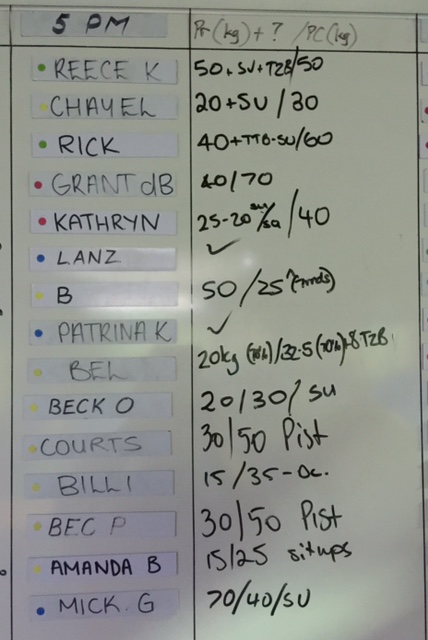 5 PM Pr (kg) + ? / PC (kg)
REECE K 50+SU+T2B/50
CHAYEL 20+SU/30
RICK 40+TTB-SU/60
GRANT dB 40/70
KATHRYN 25-20 /40
LANZ ✓
B 50/25
PATRINA K ✓
BEL 20kg /32.5 T2B
BECK O 20/30/SU
COURTS 30/50 Pist
BILLI 15/35-
BEC P 30/50 Pist
AMANDA B 15/25 situps
MICK. G 70/40/SU